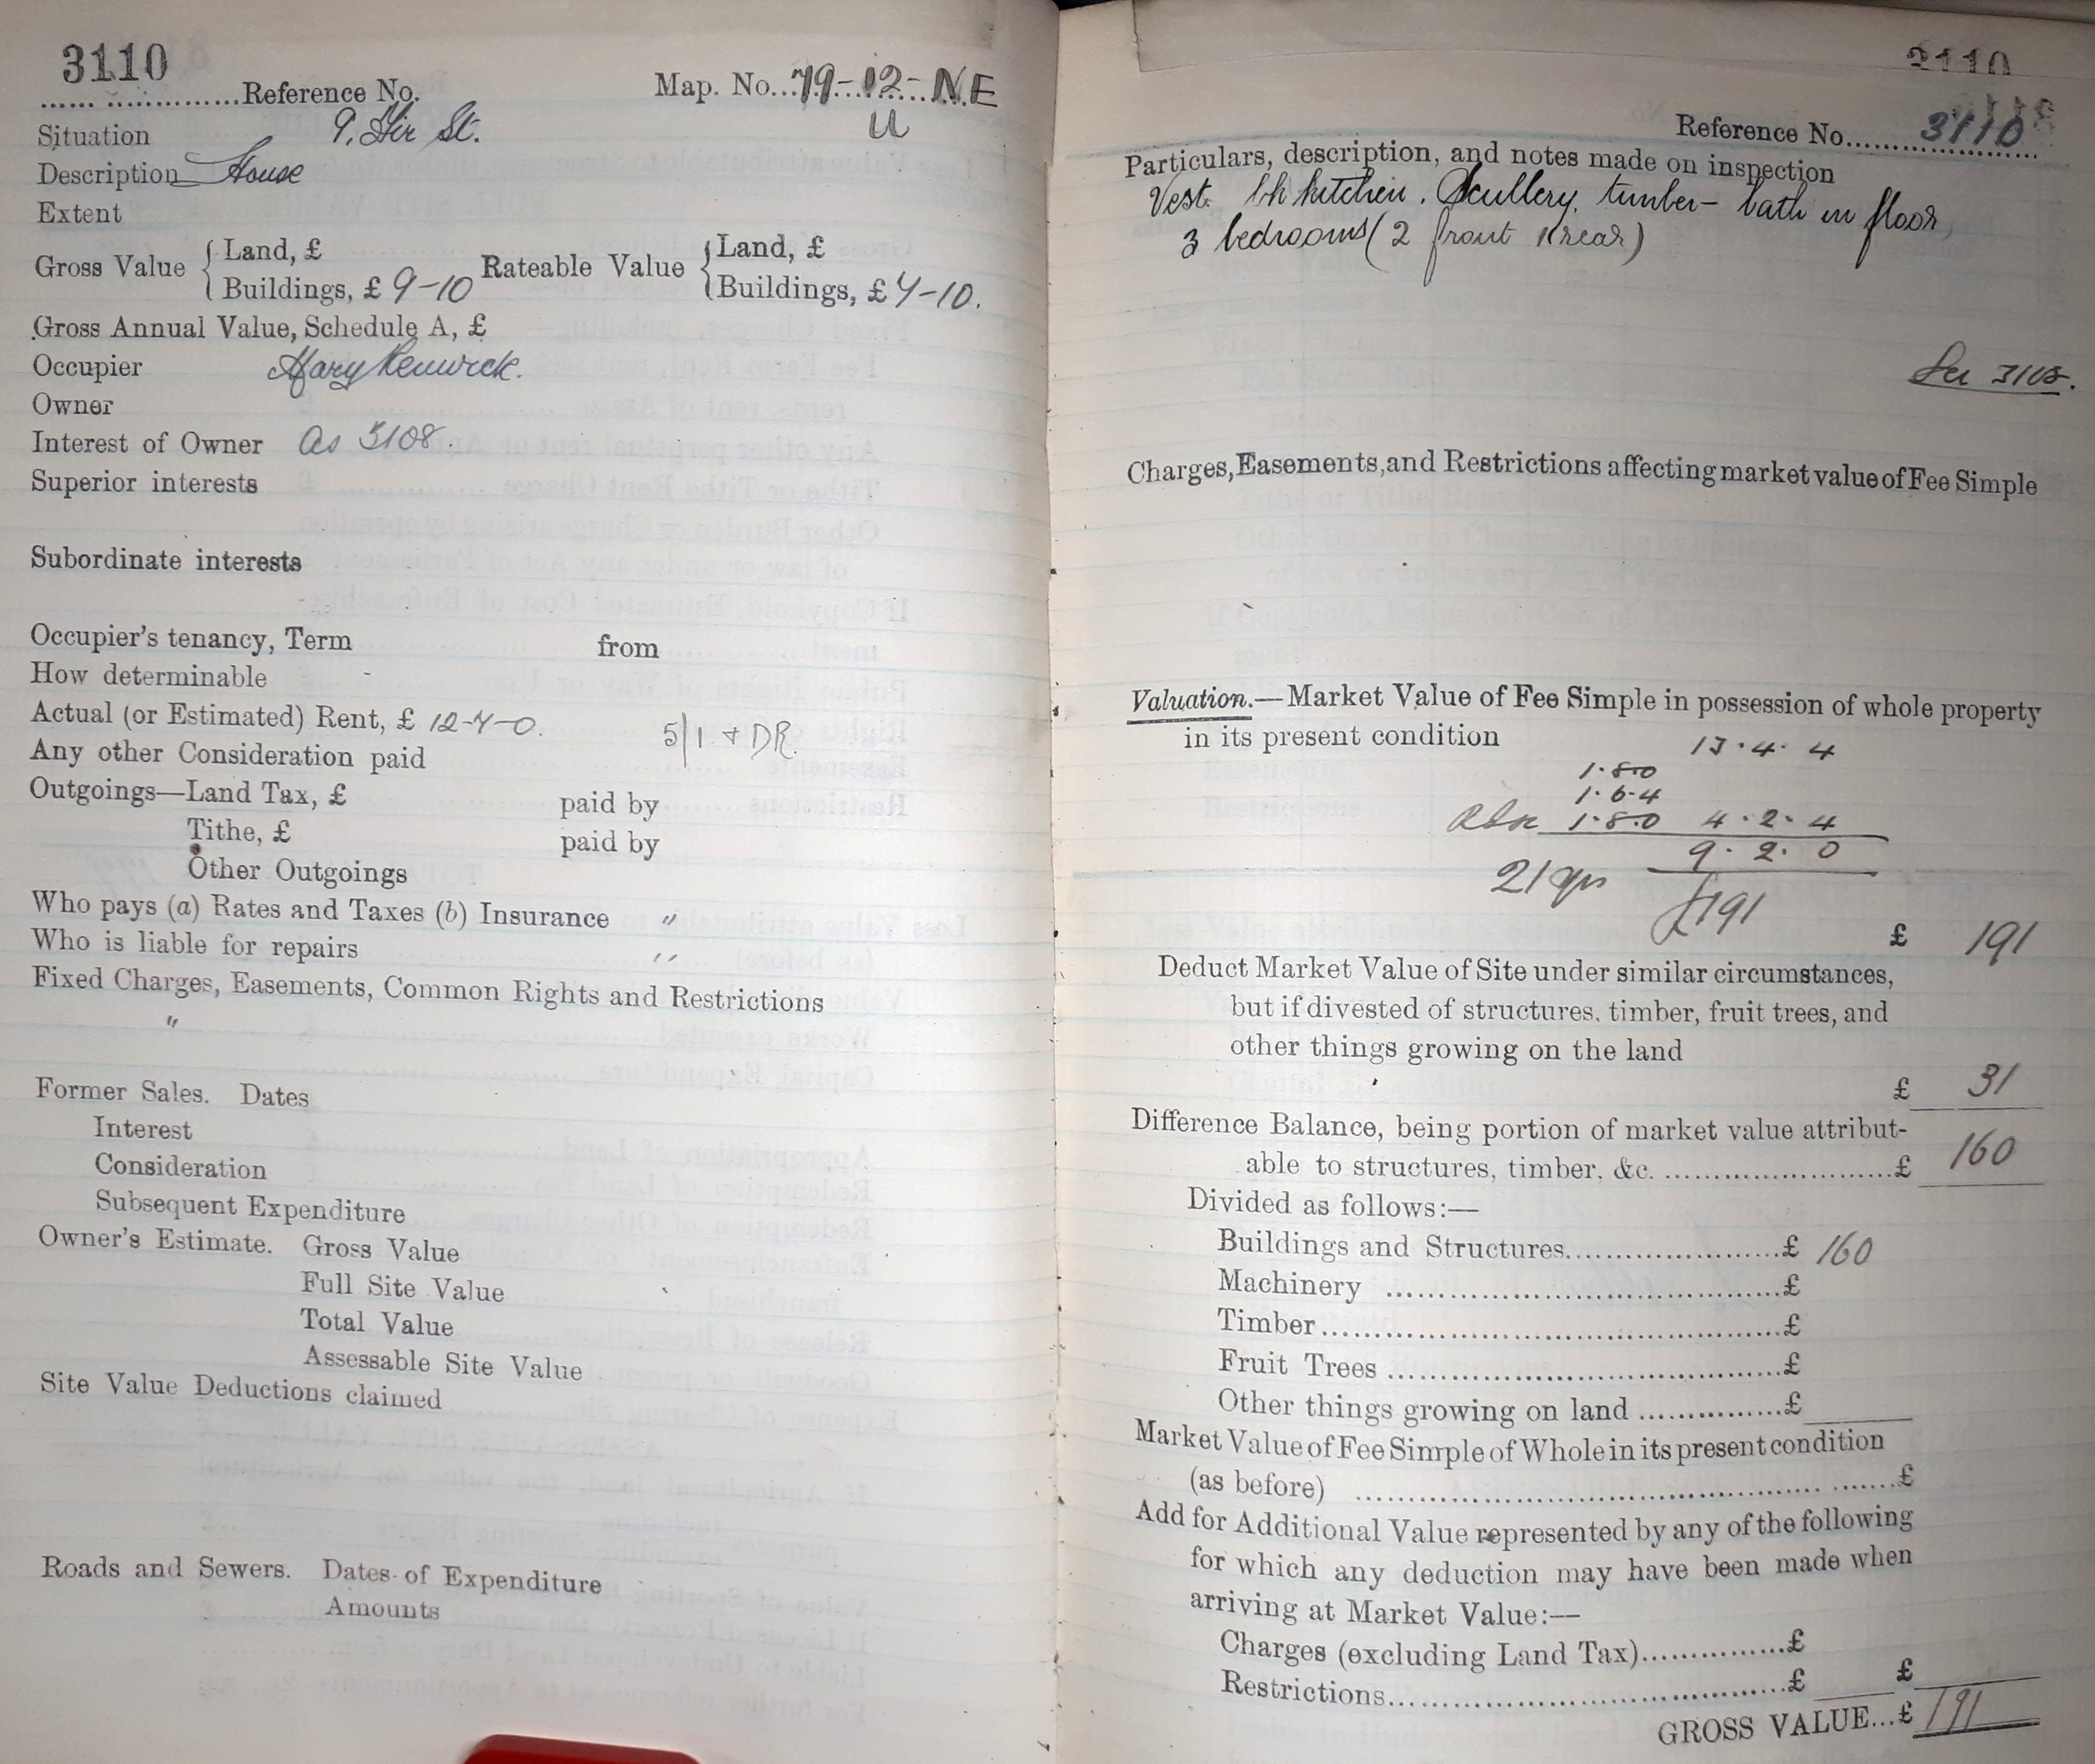 3110
...... ..............Reference No.
Map. No...79-12-NE
U
Situation 9, Fir St.
Description House
Extent
Gross Value { Land, £
Buildings, £ 9-10
Rateable Value { Land, £
Buildings, £ 7-10.
Gross Annual Value, Schedule A, £
Occupier Mary Renwick.
Owner
Interest of Owner As 3108.
Superior interests
Subordinate interests
Occupier's tenancy, Term from
How determinable
Actual (or Estimated) Rent, £ 12-7-0. 5/1 + DR.
Any other Consideration paid
Outgoings—Land Tax, £ paid by
Tithe, £ paid by
Other Outgoings
Who pays (a) Rates and Taxes (b) Insurance "
Who is liable for repairs "
Fixed Charges, Easements, Common Rights and Restrictions
"
Former Sales. Dates
Interest
Consideration
Subsequent Expenditure
Owner's Estimate. Gross Value
Full Site Value
Total Value
Assessable Site Value
Site Value Deductions claimed
Roads and Sewers. Dates of Expenditure
Amounts
3110
Reference No. 3110
Particulars, description, and notes made on inspection
Vest. kitchen. Scullery, timber- bath in floor
3 bedrooms (2 front 1 rear)
See 3108.
Charges, Easements, and Restrictions affecting market value of Fee Simple
Valuation.—Market Value of Fee Simple in possession of whole property
in its present condition 13.4.4
1.8.0
1.6.4
1.8.0 4.2.4
9.2.0
21 yrs £191
£ 191
Deduct Market Value of Site under similar circumstances,
but if divested of structures, timber, fruit trees, and
other things growing on the land
£ 31
Difference Balance, being portion of market value attribut-
able to structures, timber, &c. ..............................£ 160
Divided as follows:—
Buildings and Structures......................£ 160
Machinery ......................................£
Timber............................................£
Fruit Trees .....................................£
Other things growing on land ...............£
Market Value of Fee Simple of Whole in its present condition
(as before) ......................................................£
Add for Additional Value represented by any of the following
for which any deduction may have been made when
arriving at Market Value:—
Charges (excluding Land Tax)..............£
Restrictions.......................................£ £
GROSS VALUE...£ 191